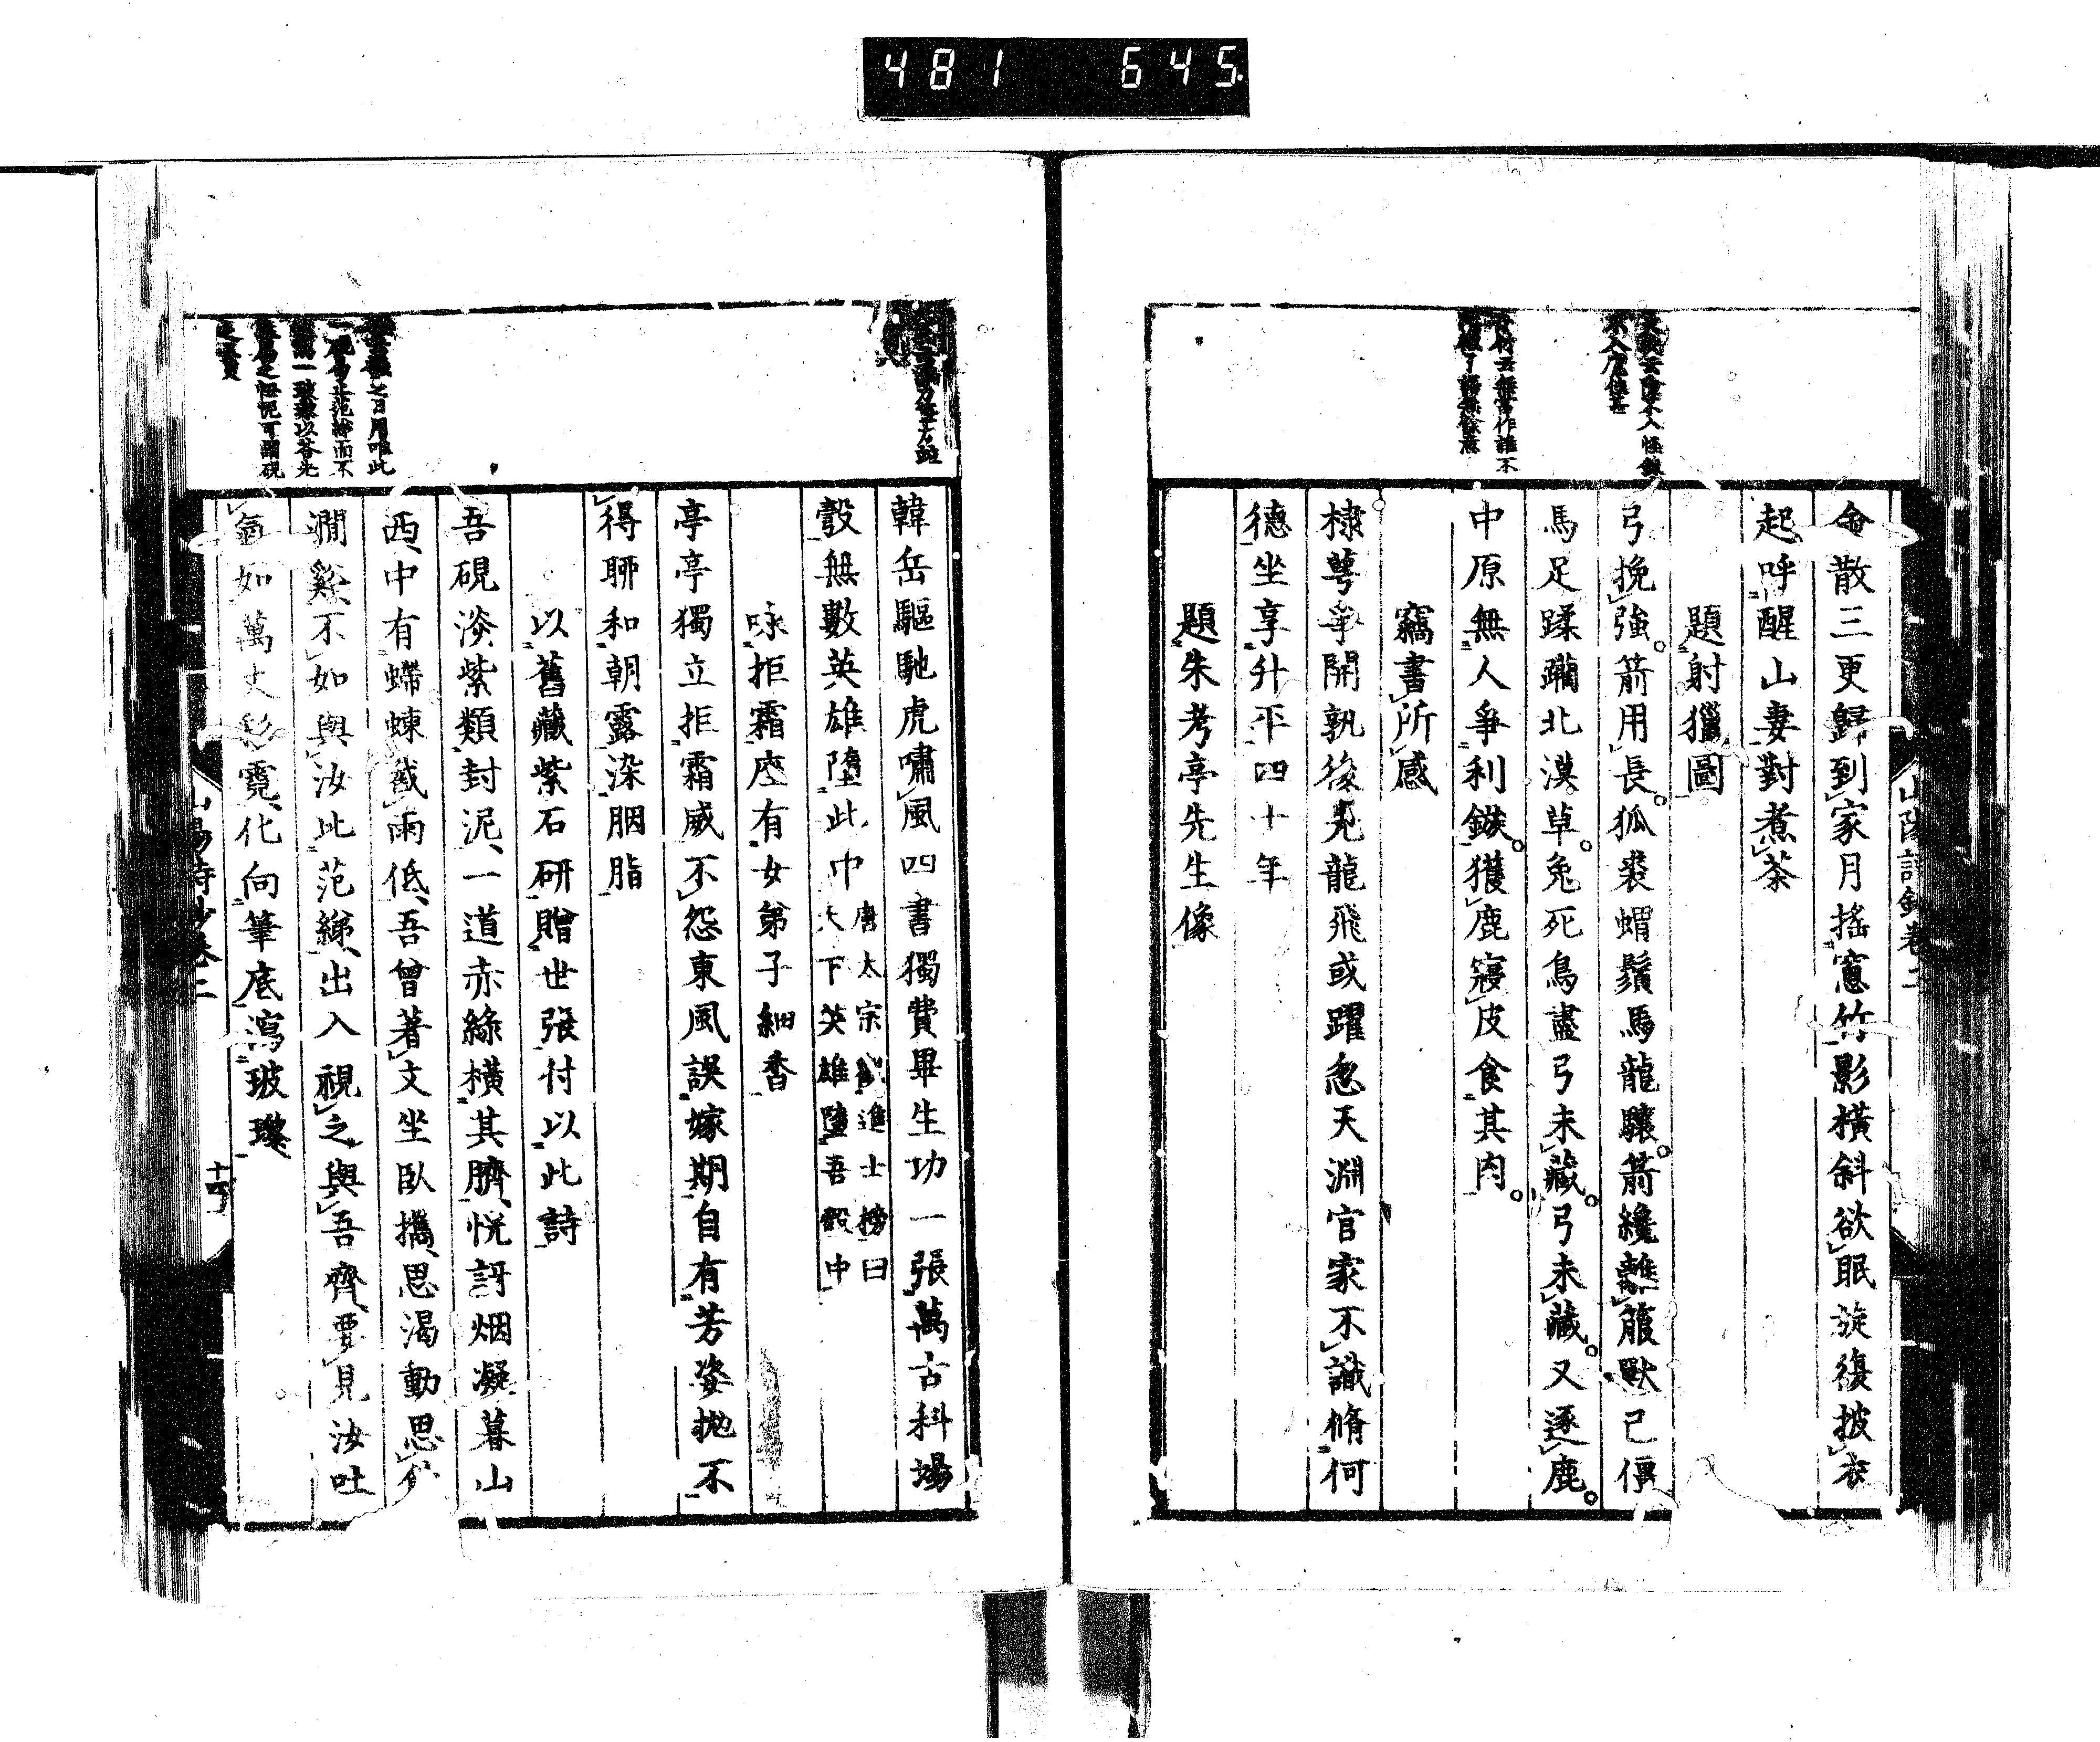 481 645
山陽詩鈔卷二
會散三更歸到家月搖窓竹影橫斜欲眠旋復披衣
起呼醒山妻對煮茶
題射獵圖
弓挽強箭用長狐裘蝟鬚馬龍驤箭纔離箙獸已僵
馬足蹂躪北漠草兔死鳥盡弓未藏弓未藏又逐鹿
中原無人爭利鏃獲鹿寢皮食其肉
竊書所感
棣萼爭開孰後先龍飛或躍忽天淵官家不識脩何
德坐享升平四十年
題朱考亭先生像
韓岳驅馳虎嘯風四書獨費畢生功一張萬古科場
彀無數英雄墮此中
唐太宗觀進士榜曰
天下英雄墮吾彀中
咏拒霜座有女弟子細香
亭亭獨立拒霜威不怨東風誤嫁期自有芳姿拋不
得聊和朝露染胭脂
以舊藏紫石研贈世張付以此詩
吾硯淡紫類封泥一道赤綠橫其臍恍訝烟凝暮山
西中有螮蝀截雨低吾曾著文坐臥攜思渴動思
澗谿不如與汝此范綈出入視之與吾齊要見汝吐
氣如萬丈彩霓化向筆底瀉玻瓈
山陽詩鈔卷二
十四